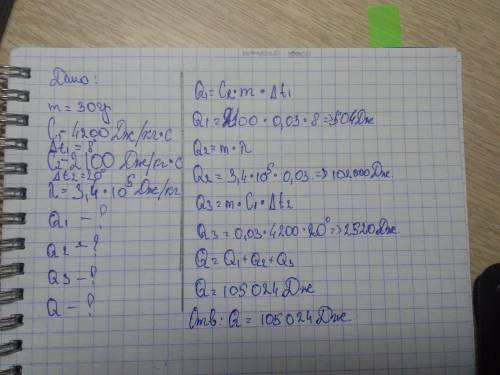 Дано:
m = 30гр
C₁- 4200 Дж/кг•с
Δt₁ = 8°
C₂- 2100 Дж/кг•с
Δt₂ = 20°
λ = 3,4•10⁵ Дж/кг
Q₁ - ?
Q₂ - ?
Q₃ - ?
Q - ?
Q₁ = C₂•m•Δt₁
Q₁ = 2100•0,03•8 => 504Дж
Q₂ = m•λ
Q₂ = 3,4•10⁵•0,03 => 102000Дж
Q₃ = m•C₁•Δt₂
Q₃ = 0,03•4200•20° => 2520Дж
Q = Q₁+Q₂+Q₃
Q = 105024Дж
Отв: Q = 105024Дж